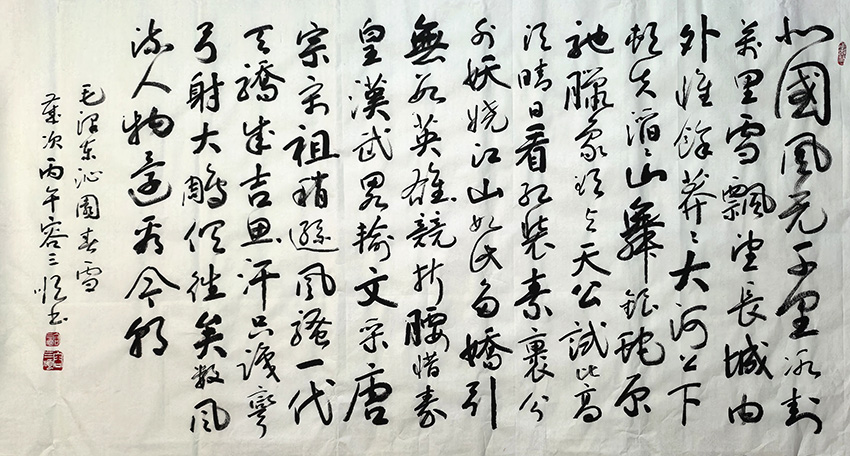 北國風光千里冰封
萬里雪飄望長城內
外惟餘莽〻大河上下
頓失滔〻山舞銀蛇原
馳臘象欲與天公試比高
須晴日看紅裝素裹分
外妖嬈江山如此多嬌引
無數英雄競折腰惜秦
皇漢武略輸文采唐
宗宋祖稍遜風騷一代
天驕成吉思汗只識彎
弓射大鵰俱往矣數風
流人物還看今朝
毛澤東沁園春雪
歲次丙午容三書